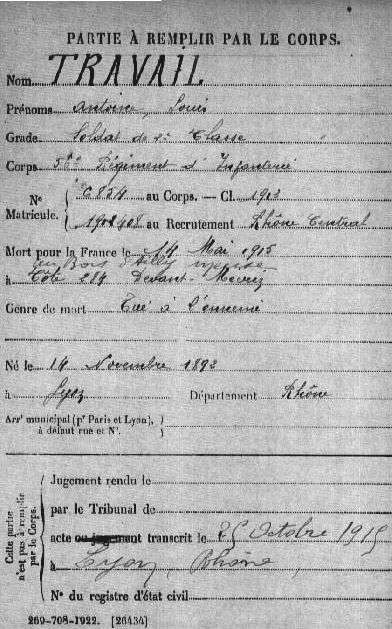 PARTIE À REMPLIR PAR LE CORPS.
Nom TRAVAIL
Prénoms Antoine, Louis
Grade Soldat de 2e Classe
Corps Régiment d'Infanterie
N° Matricule. { au Corps. — Cl. 1913
au Recrutement Rhône Central
Mort pour la France le 14 Mai 1915
au Bois d'Ailly
à Côte Devant
Genre de mort Tué à l'ennemi
Né le 14 Novembre 1893
à Lyon Département Rhône
Arrt municipal (pr Paris et Lyon),
à défaut rue et N°.
Cette partie
n'est pas à remplir
par le Corps.
Jugement rendu le
par le Tribunal de
acte ou jugement transcrit le 25 Octobre 1915
à Lyon, Rhône,
N° du registre d'état civil
269-708-1922. [26434]